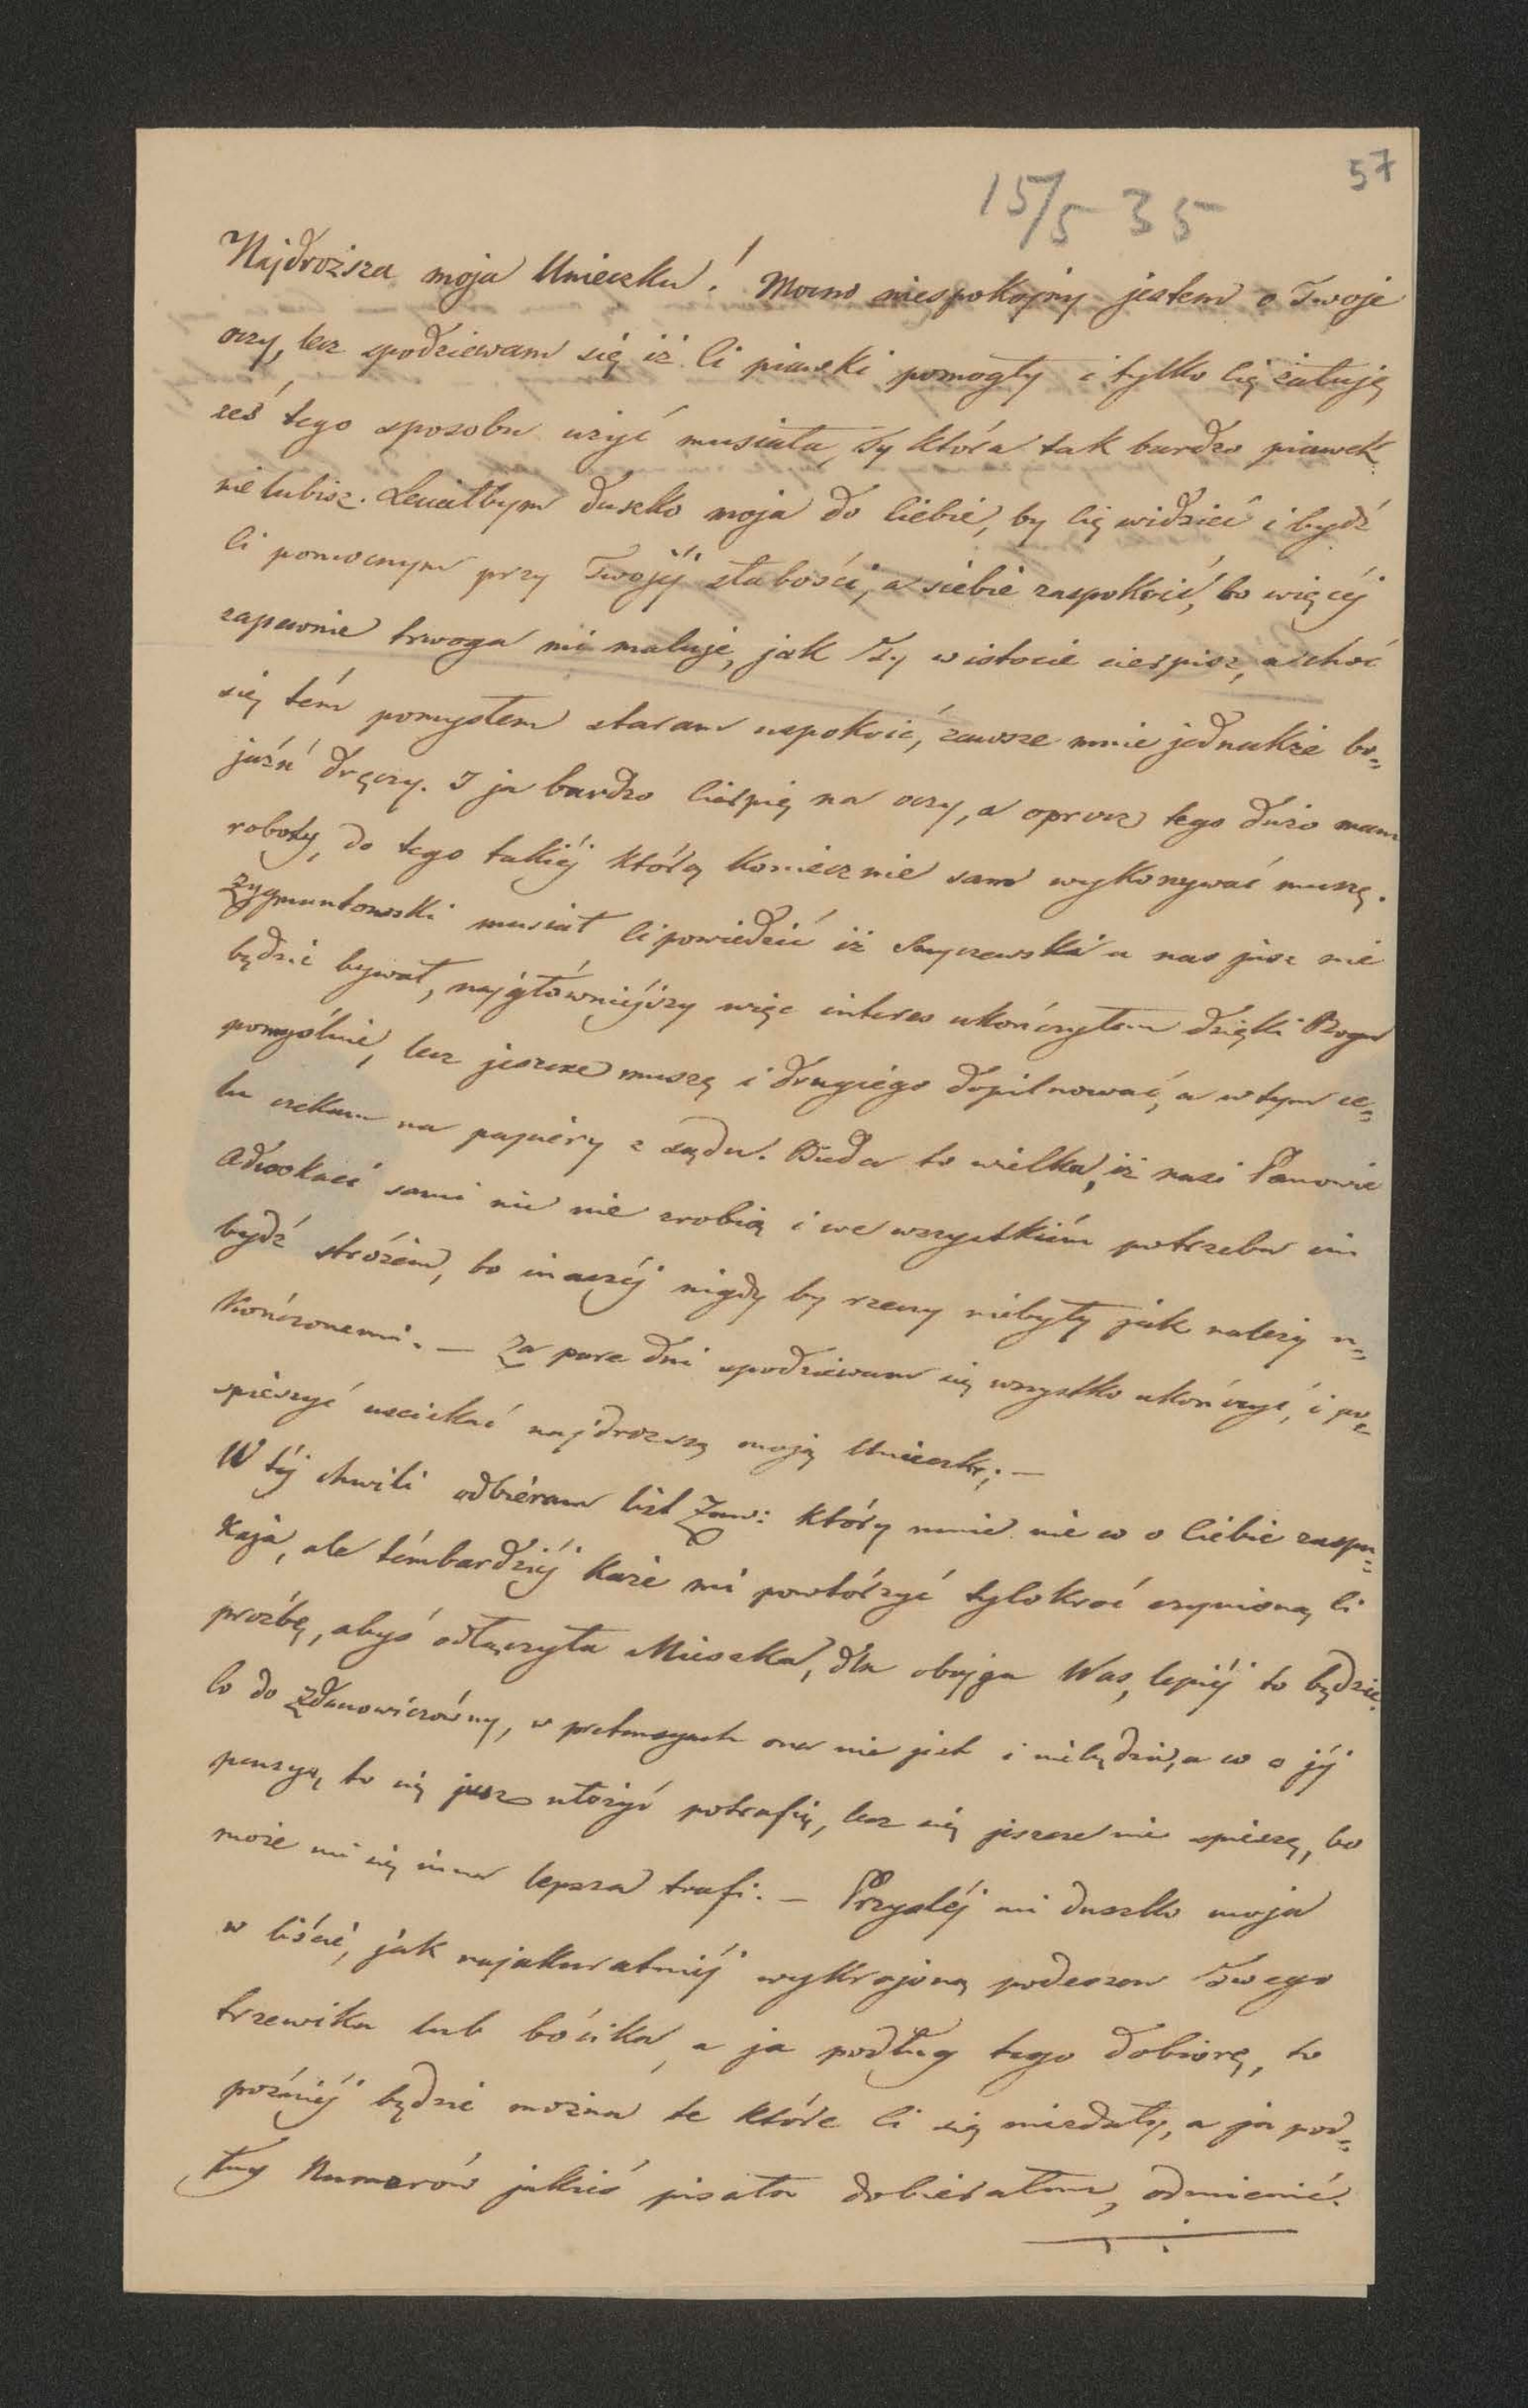 57
15/5 35
Najdroższa moja Unieczku! Mocno niespokojny jestem o Twoje
oczy, lecz spodziewam się iż Ci piawki pomogły i tylko Cię żałuję
żeś tego sposobu użyć musiała, Ty która tak bardzo piawek
nie lubisz. Leciałbym duszko moja do Ciebie, by Cię widzieć i bydź
Ci pomocnym przy Twojéj słabości, a siebie zaspokoić, bo więcéj
zapewnie trwoga mi maluje, jak Ty w istocie cierpisz, a choć
się tém pomysłem staram uspokoić, zawsze mnie jednakże bo=
jaźń dręczy. I ja bardzo cierpię na oczy, a oprócz tego dużo mam
roboty, do tego takiéj którą koniecznie sam wykonywać muszę.
Zygmuntowski musiał Ci powiedzieć iż u nas jusz nie
będzie bywał, najgłówniéjszy więc interes ukończyłem dzięki Bogu
pomyślnie, lecz jeszcze muszę i drugiego dopilnować, a w tym ce=
lu czekam na papiéry z sądu. Bieda to wielka, iż nasi Panowie
Adwokaci sami nic nie zrobią i we wszystkiém potrzeba im
bydź stróżem, bo inaczéj nigdy by rzeczy niebyły jak należy u=
kończonemi. — Za pare dni spodziewam się wszystko ukończyć, i po=
spieszyć uściskać najdroższą moją Unieczkę; —
W téj chwili odbiéram list Zaw: który mnie nie w o Ciebie zaspo=
kaja, ale témbardziéj każe mi powtórzyć tylokroć czynioną Ci
prożbę, abyś odłączyła Mieszka, dla obojga Was, lepiéj to będzie.
Co do Zdanowiczówny, w pretensyach ona nie jest i niebędzie, a co o jéj
pensyą, to się jusz ułożyć potrafię, lecz się jeszcze nie spieszę, bo
może mi się inna lepsza trafi. — Przyszléj mi duszko moja
w liście, jak najakuratniéj wykrajoną podeszew Twego
trzewika lub bócika, a ja podług tego dobiorę, to
poźniéj będzie można te które Ci się niezdały, a ja pod=
ług Numerów jakieś pisała dobierałem, odmienić.